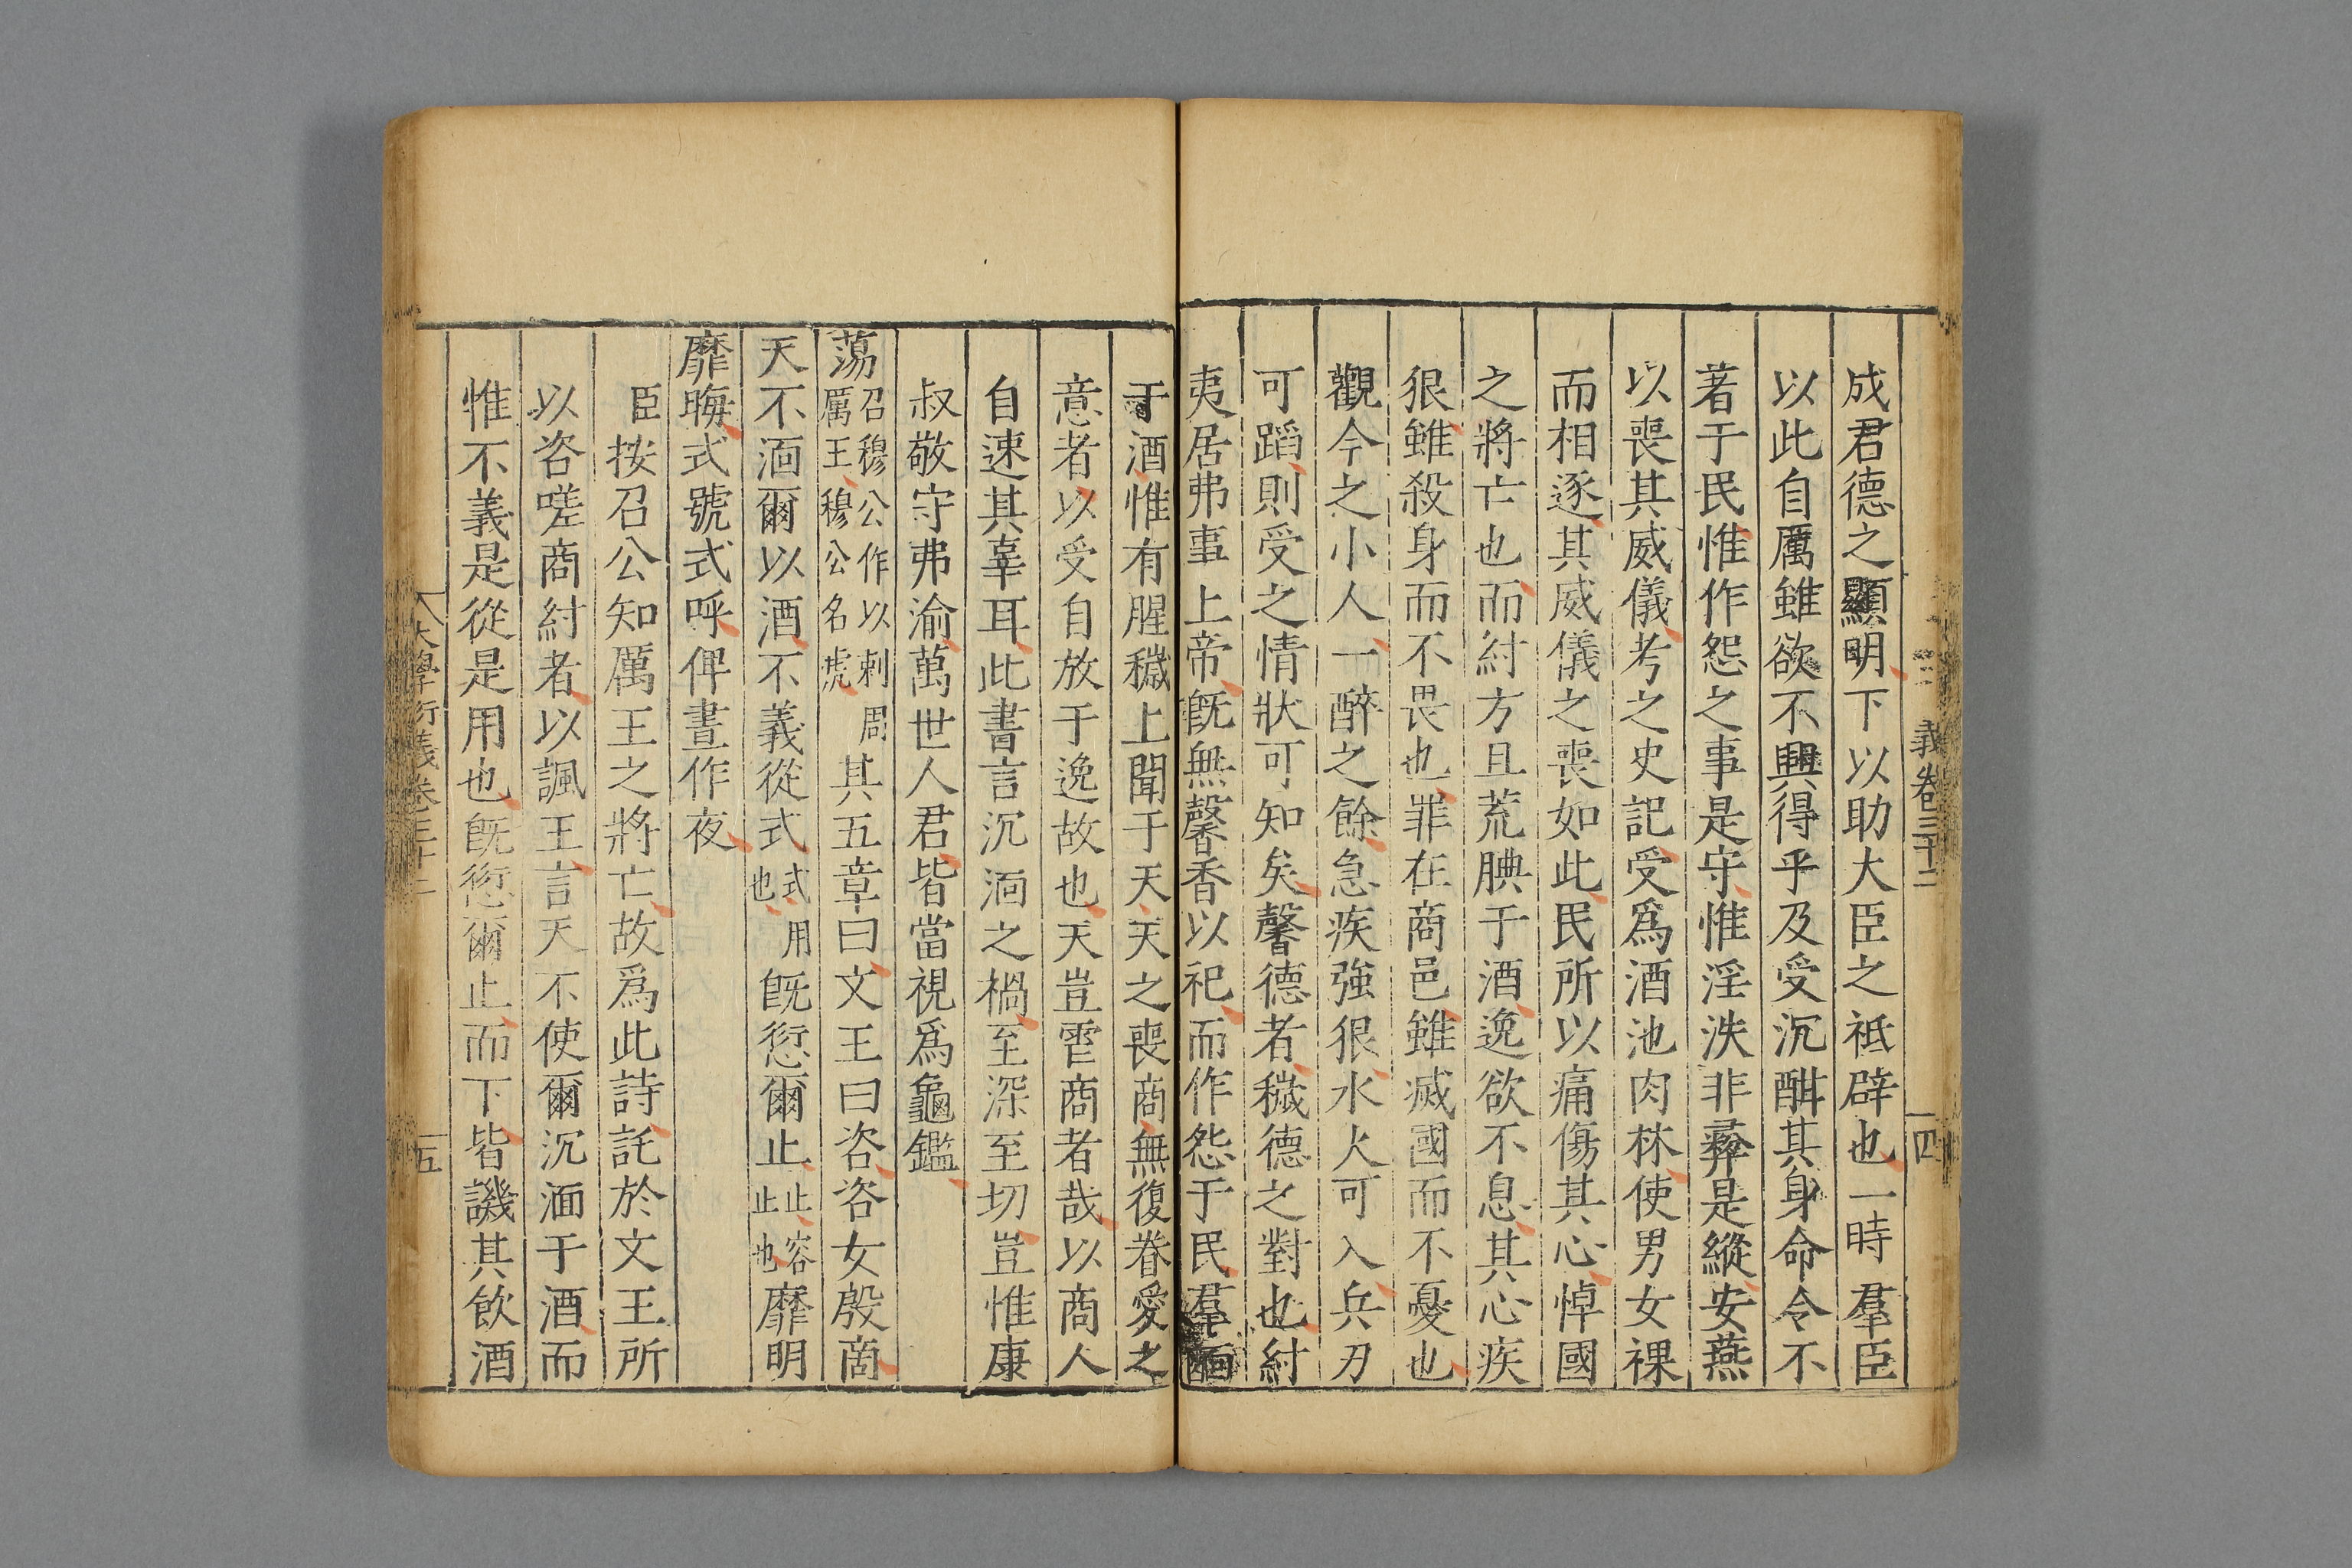 義卷三十二
四
成君德之顯明下以助大臣之祗辟也一時羣臣
以此自厲雖欲不興得乎及受沉酣其身命令不
著于民惟作怨之事是守惟淫泆非彝是縱安燕
以喪其威儀考之史記受爲酒池肉林使男女裸
而相逐其威儀之喪如此民所以痛傷其心悼國
之將亡也而紂方且荒腆于酒逸欲不息其心疾
狠雖殺身而不畏也罪在商邑雖滅國而不憂也
觀今之小人一醉之餘急疾強狠水火可入兵刃
可蹈則受之情狀可知矣馨德者穢德之對也紂
夷居弗事上帝旣無馨香以祀而作怨于民羣酗
于酒惟有腥穢上聞于天天之喪商無復眷愛之
意者以受自放于逸故也天豈虐商者哉以商人
自速其辜耳此書言沉湎之禍至深至切豈惟康
叔敬守弗渝萬世人君皆當視爲龜鑑
蕩召穆公作以刺周厲王穆公名虎其五章曰文王曰咨咨女殷商
天不湎爾以酒不義從式式用也旣愆爾止止容止也靡明
靡晦式號式呼俾晝作夜
臣按召公知厲王之將亡故爲此詩託於文王所
以咨嗟商紂者以諷王言天不使爾沉湎于酒而
惟不義是從是用也旣愆爾止而下皆譏其飲酒
大學衍義卷三十二
五